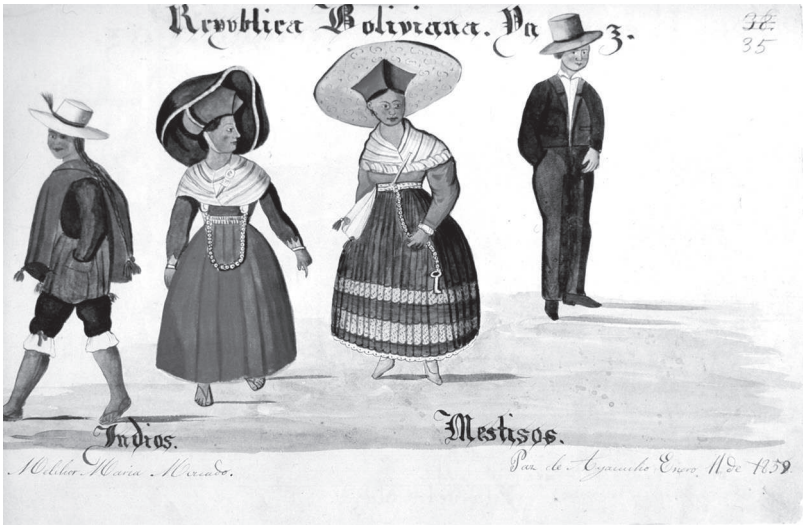 Republica Boliviana. Pa z.
32
35
Indios.
Mestisos.
Melchor Maria Mercado.
Paz de Ayacucho Enero 11 de 1859